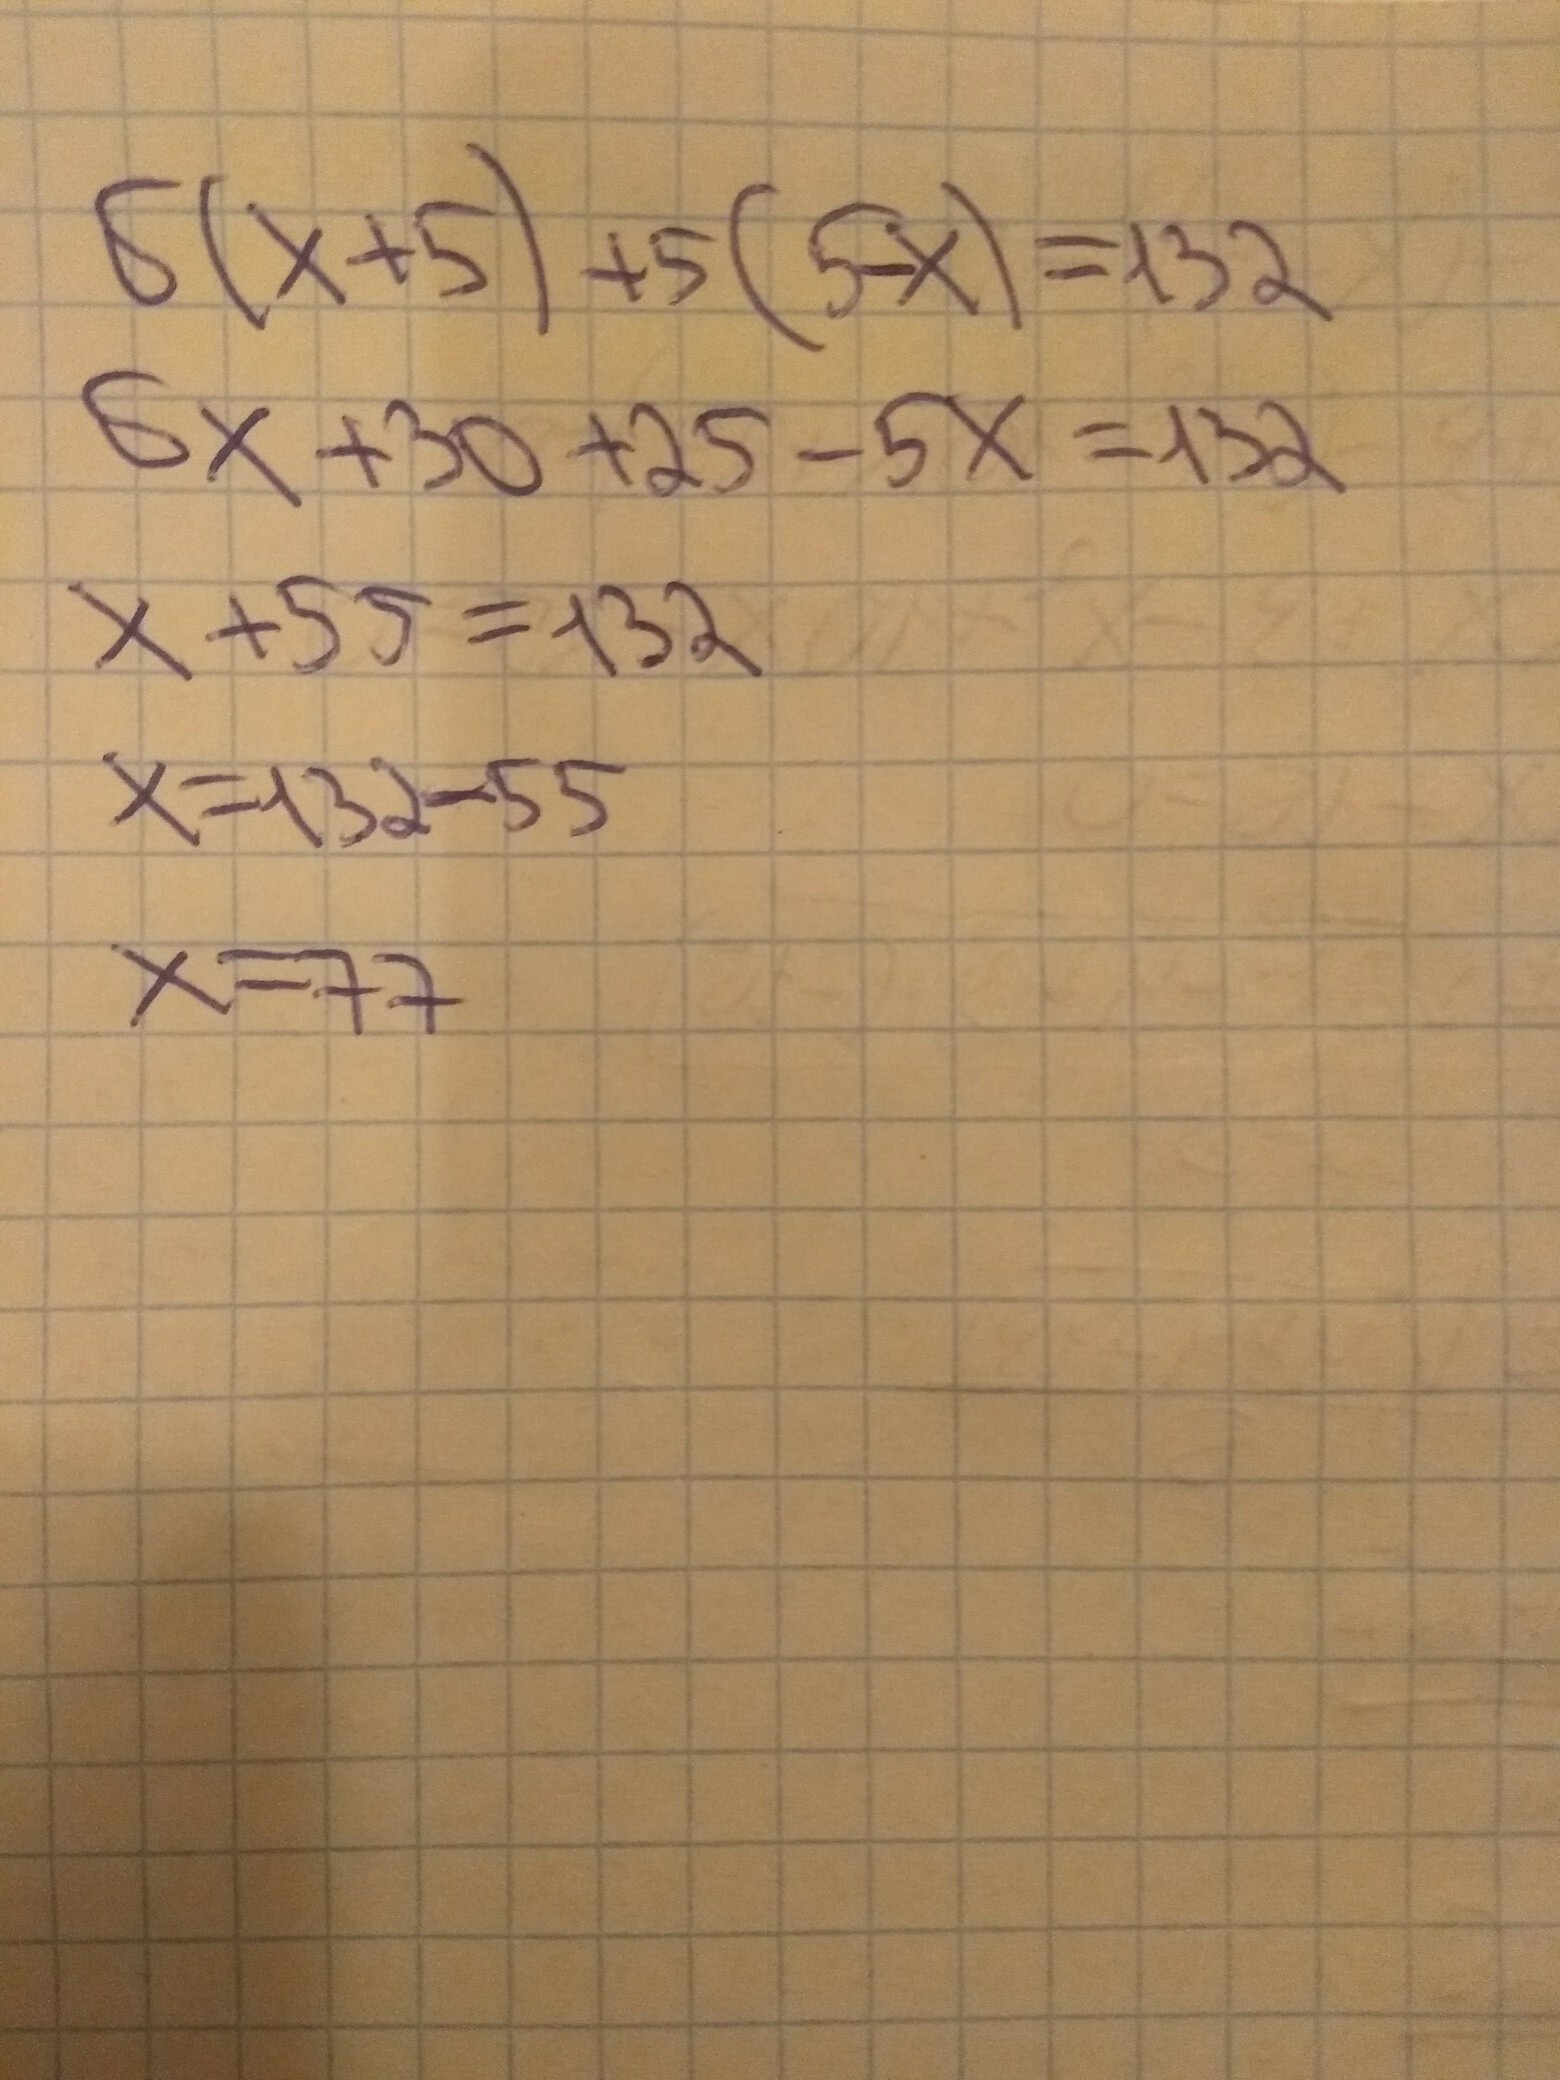 6(x+5)+5(5-x)=132
6x+30+25-5x=132
x+55=132
x=132-55
x=77